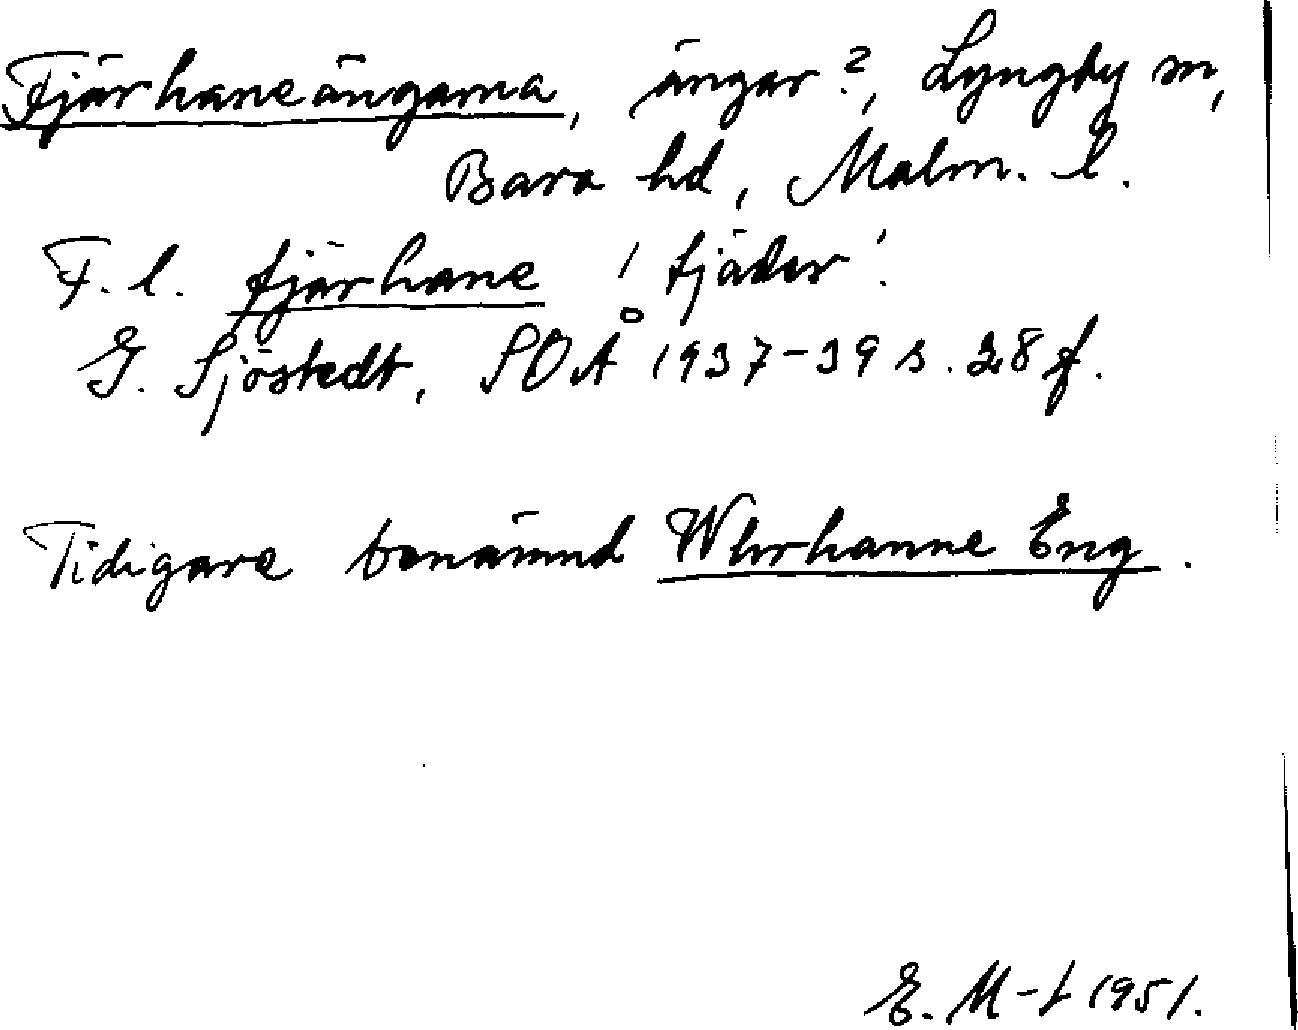 Fjärhaneängarna, ängar?, Lyngby sn,
Bara hd, Malm. l.
F. l. fjärhane 'tjäder'.
G. Sjöstedt, SOÅ 1937-39 s. 28 f.
Tidigare benämnd Whrhanne Eng.
E. M-L 1951.